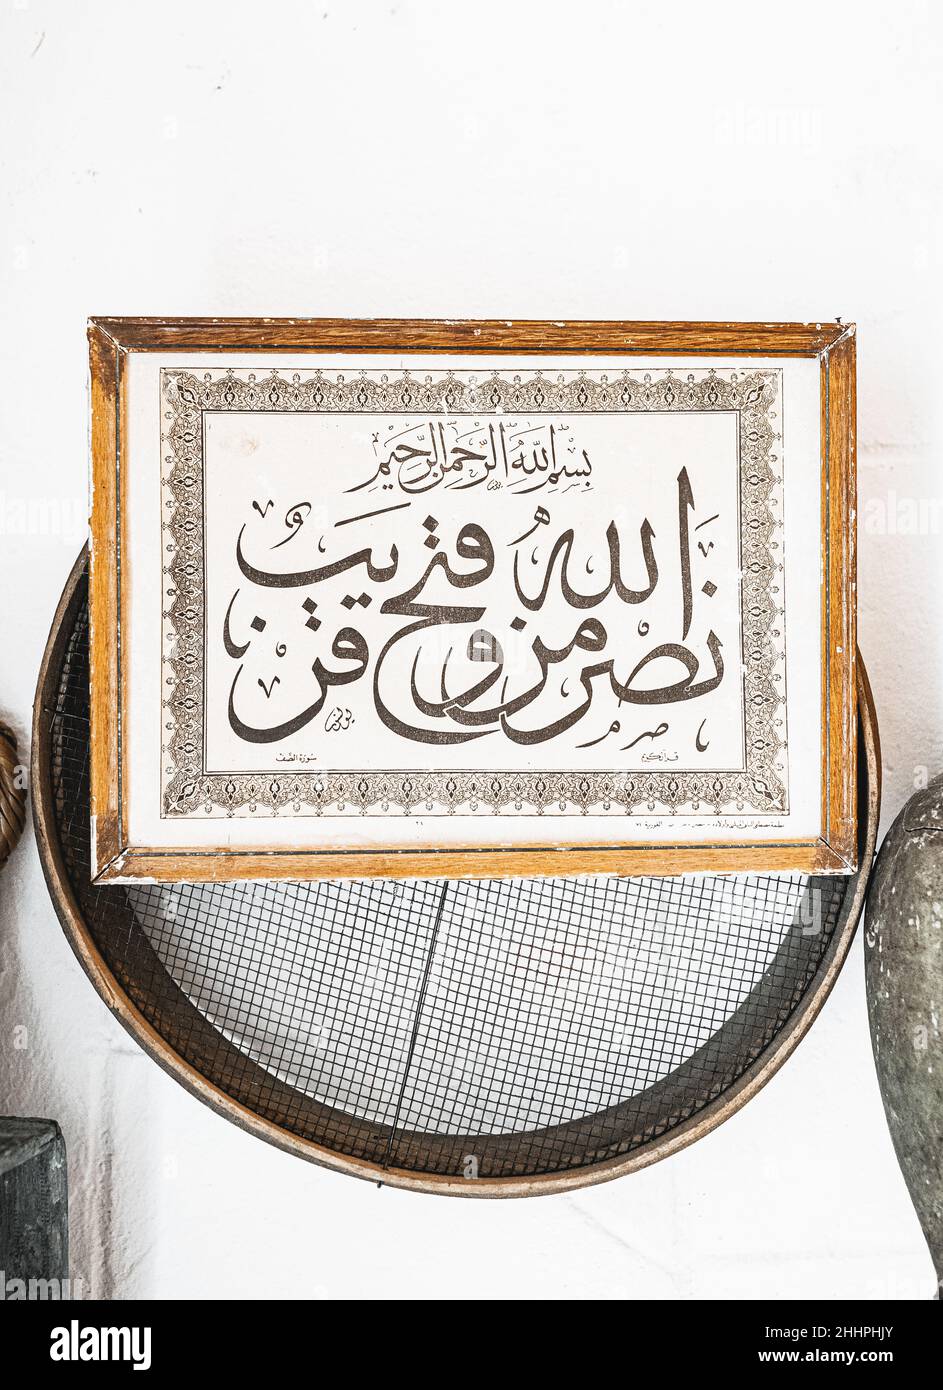 بِسْمِ اللَّهِ الرَّحْمٰنِ الرَّحِيمِ
نَصْرٌ مِنَ اللَّهِ وَفَتْحٌ قَرِيبٌ
قرآن كريم
سُورَة الصَّف
٢٨
alamy
Image ID: 2HHPHJY
www.alamy.com